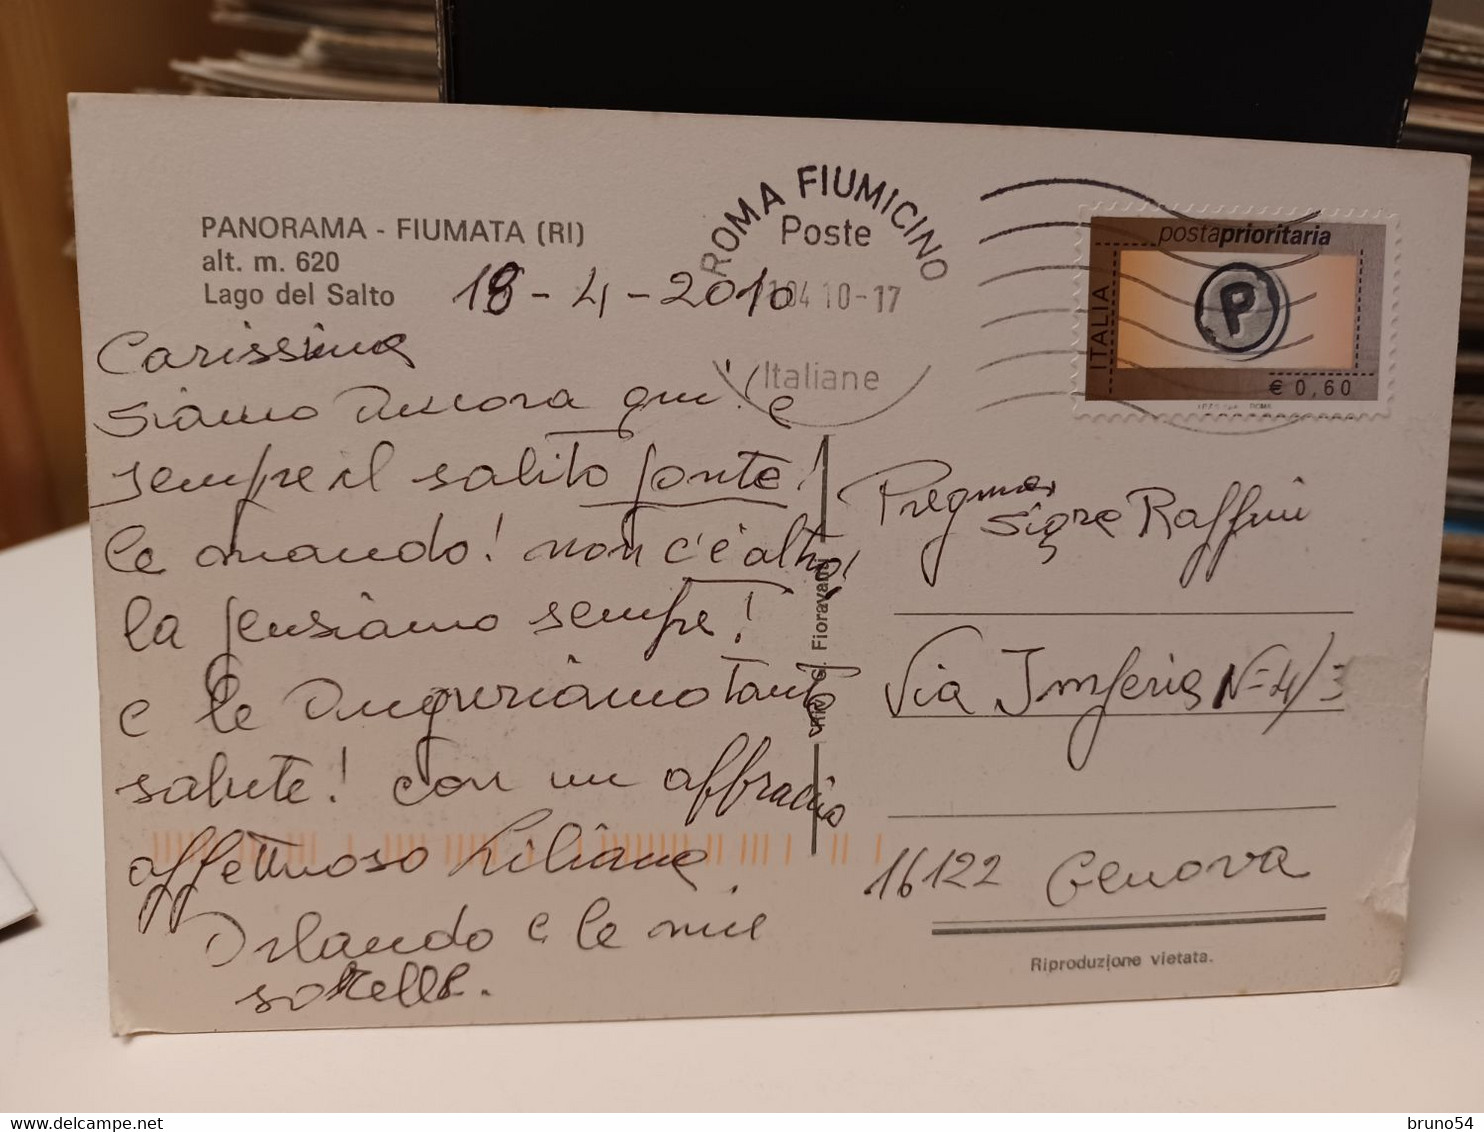 PANORAMA - FIUMATA (RI)
alt. m. 620
Lago del Salto
18-4-2010
Carissima
siamo ancora qui! e
sempre il solito ponte!
le mando! non c'è altro!
la pensiamo sempre!
e le auguriamo tanta
salute! con un abbraccio
affettuoso Liliana
Orlando e le mie
sorelle.
ROMA FIUMICINO
Poste
04 10-17
Italiane
postaprioritaria
ITALIA
P
€ 0,60
G. Fioravanti
Sigra Raffini
Via Imperia N=4/3
16122 Genova
Riproduzione vietata.
bruno54